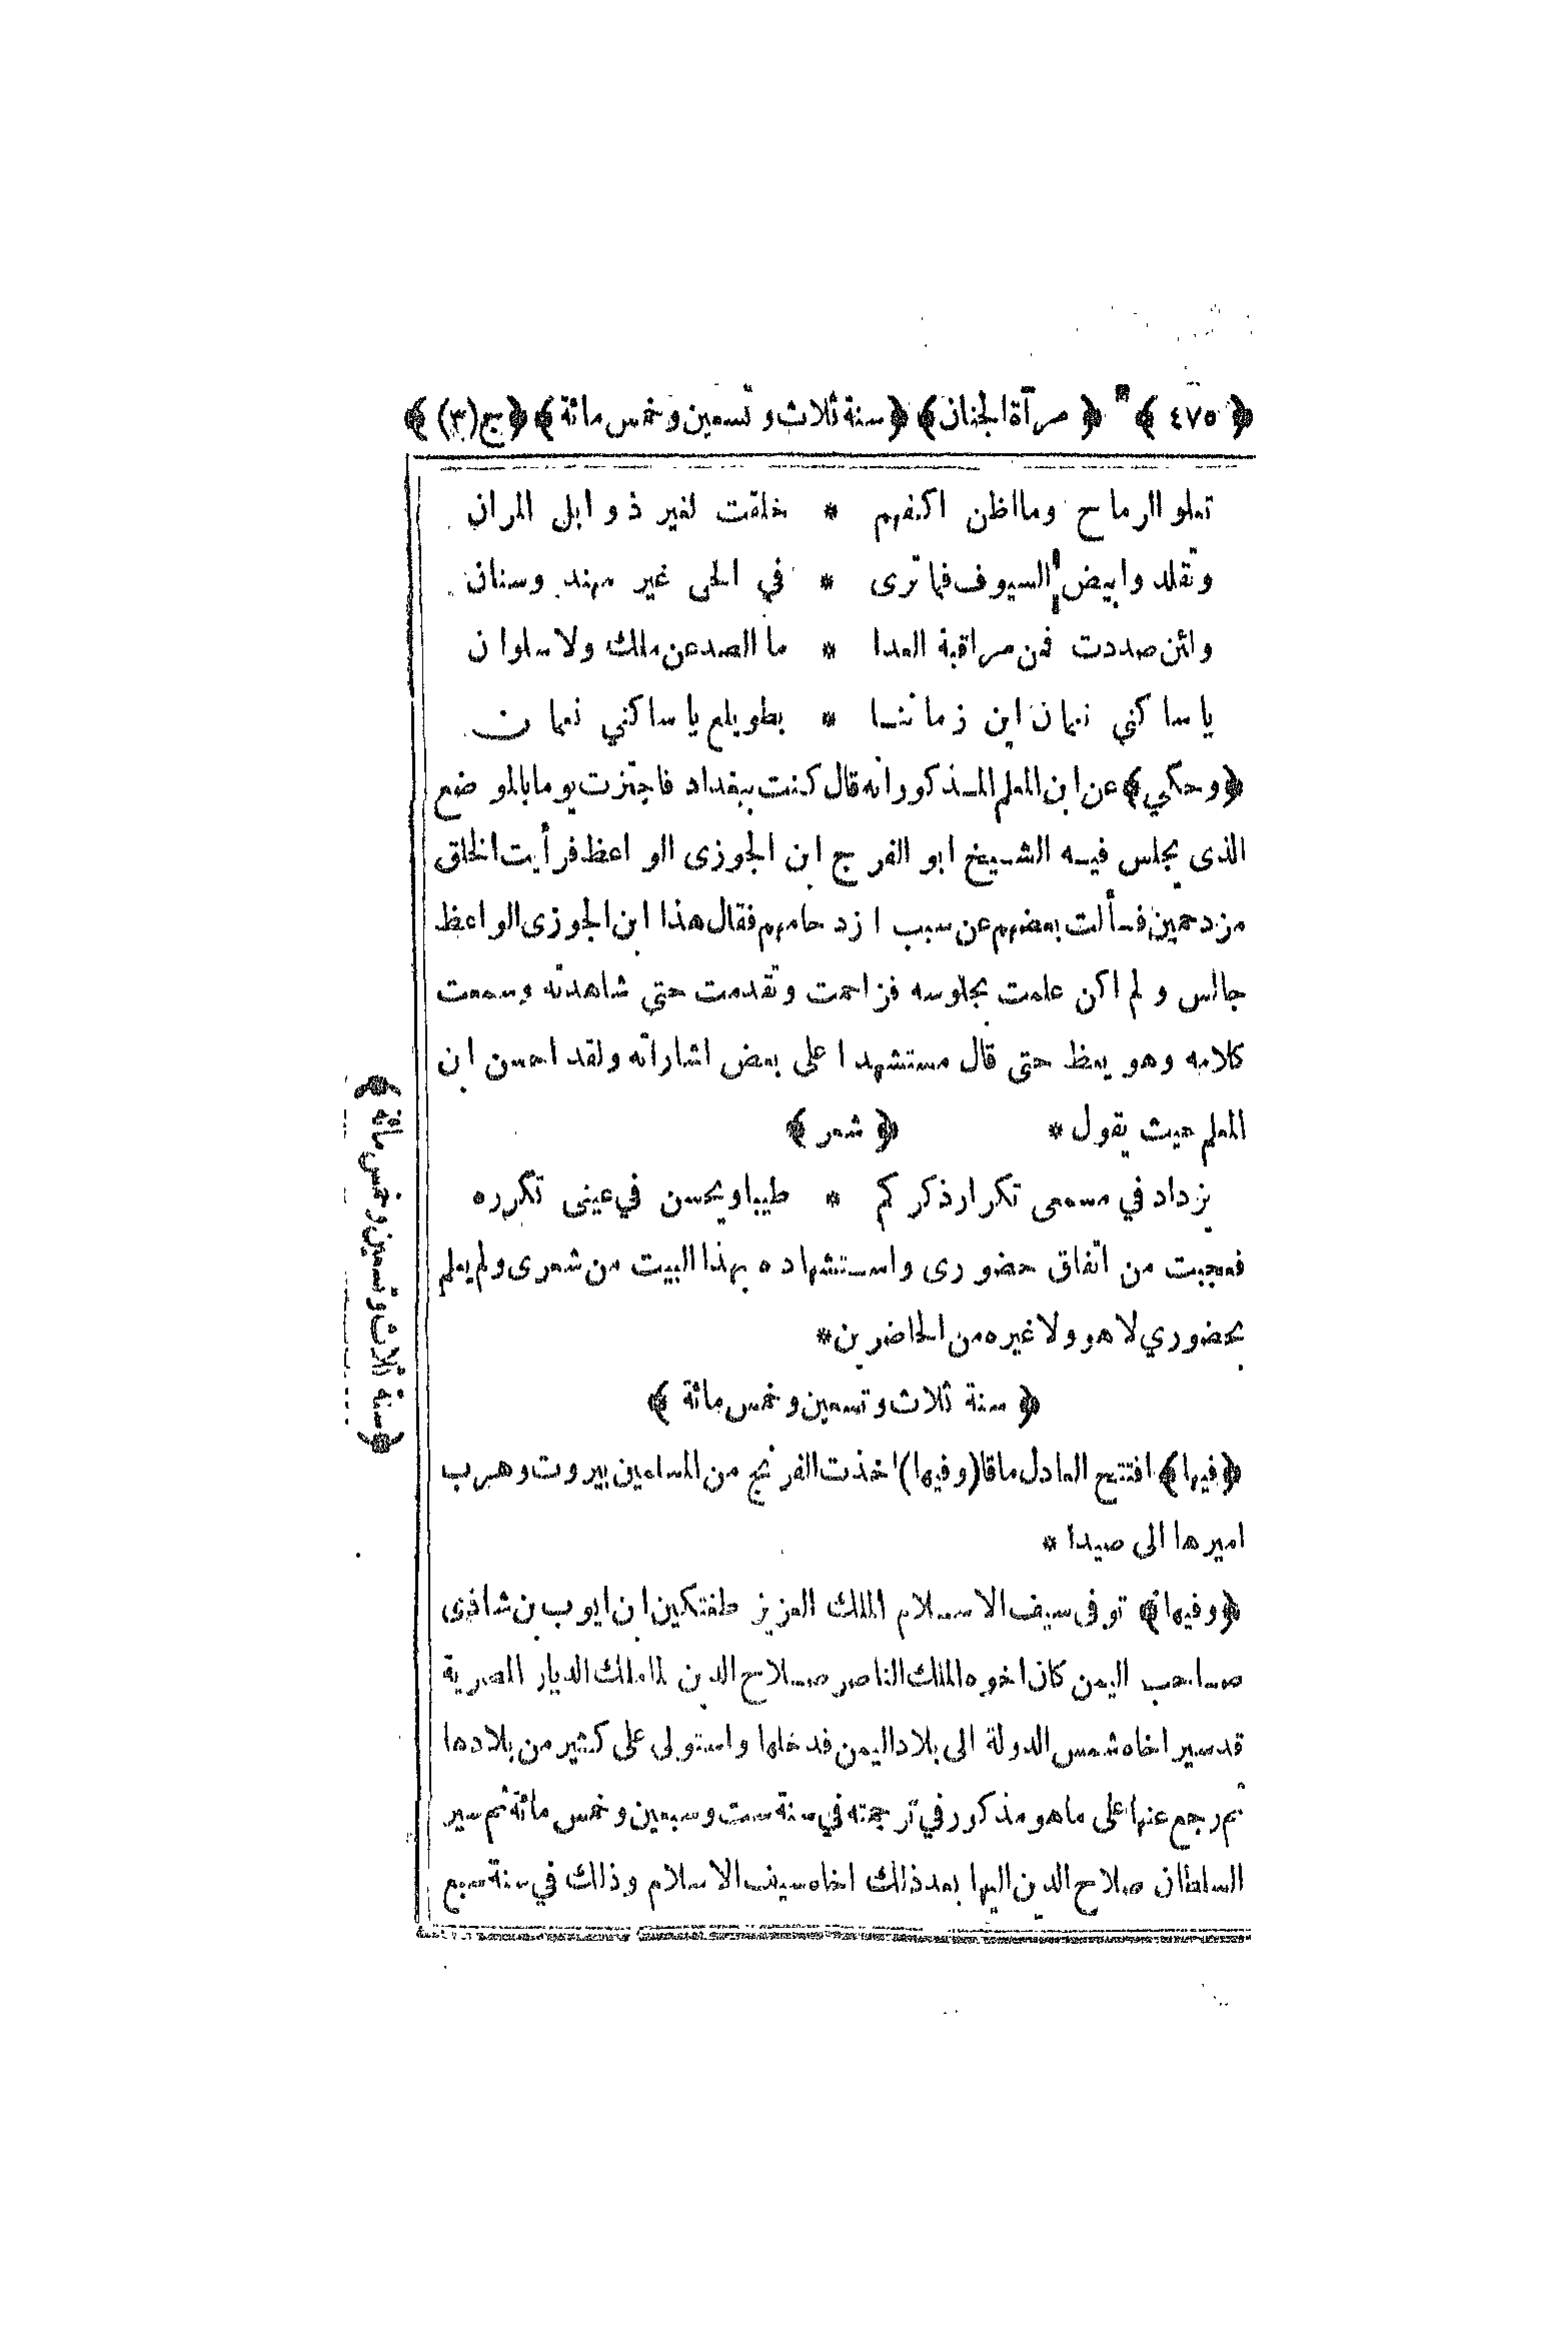 ﴿ ٤٧٥ ﴾ ﴿ مرآة الجنان ﴾ ﴿ سنة ثلاث وتسعين وخمس مائة ﴾ ﴿ ج (٣) ﴾
تعلو الرماح وما اظن اكفهم * خلقت لغير ذوابل المران
وتقلدوا بيض السيوف فما ترى * في الحى غير مهند وسنان
ولئن صددت فمن مراقبة العدا * ما الصد عن ملك ولا سلوان
يا ساكني نعمان اين زماننا * بطويلع يا ساكني نعمان
﴿وحكي﴾ عن ابن المعلم المذكور انه قال كنت ببغداد فاجتزت يوما بالموضع
الذى يجلس فيه الشيخ ابو الفرج ابن الجوزى الواعظ فرأيت الخلق
مزدحمين فسألت بعضهم عن سبب ازدحامهم فقال هذا ابن الجوزى الواعظ
جالس ولم اكن علمت بجلوسه فزاحمت وتقدمت حتى شاهدته وسمعت
كلامه وهو يعظ حتى قال مستشهدا على بعض اشاراته ولقد احسن ابن
المعلم حيث يقول * ﴿ شعر ﴾
يزداد في مسمعى تكرار ذكركم * طيبا ويحسن في عينى تكرره
فعجبت من اتفاق حضورى واستشهاده بهذا البيت من شعرى ولم يعلم
بحضوري لا هو ولا غيره من الحاضرين *
﴿ سنة ثلاث وتسعين وخمس مائة ﴾
﴿فيها﴾ افتتح العادل ماقا (وفيها) اخذت الفرنج من المسلمين بيروت وهرب
اميرها الى صيدا *
﴿وفيها﴾ توفى سيف الاسلام الملك العزيز طغتكين ابن ايوب بن شاذى
صاحب اليمن كان اخوه الملك الناصر صلاح الدين لما ملك الديار المصرية
قد سير اخاه شمس الدولة الى بلاد اليمن فدخلها واستولى على كثير من بلادها
ثم رجع عنها على ما هو مذكور في ترجمته في سنة ست وسبعين وخمس مائة ثم سير
السلطان صلاح الدين اليها بعد ذلك اخاه سيف الاسلام وذلك في سنة سبع
﴿سنة ثلاث وتسعين وخمس مائة﴾